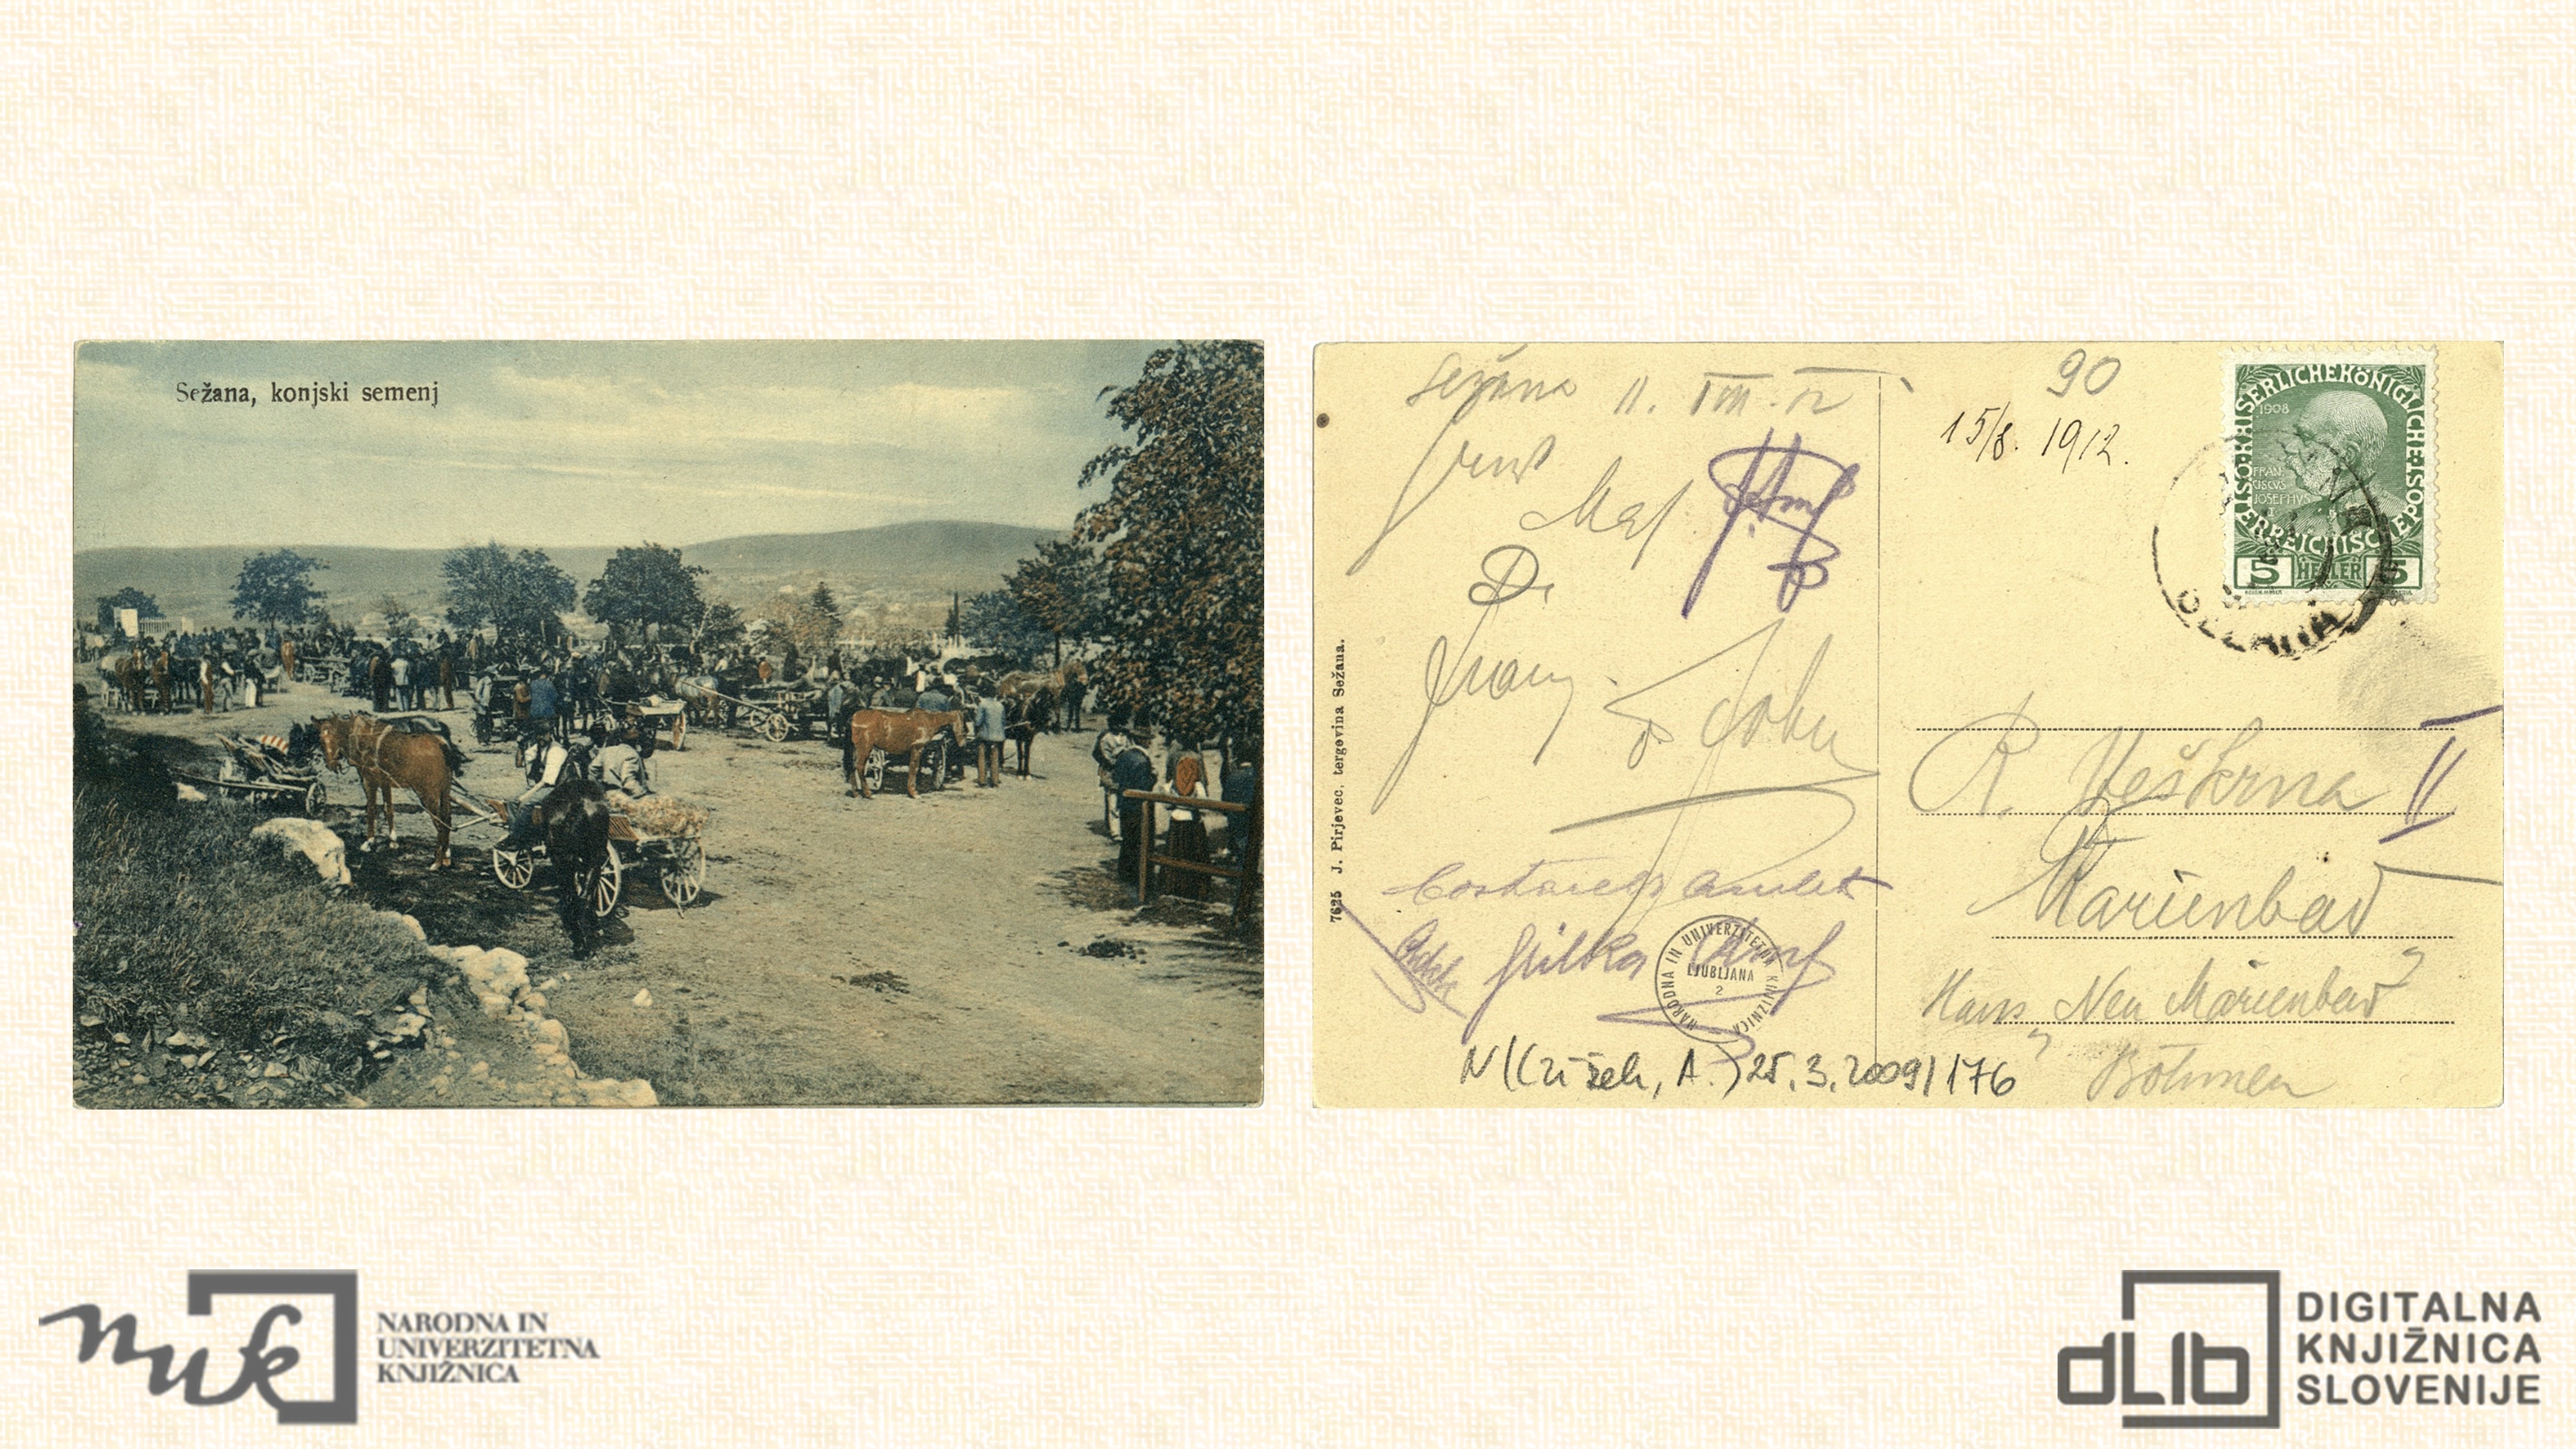 Sežana, konjski semenj
Sežana 11. VIII. 12
Dr.
Franz
Milka
7625 J. Pirjevec, tergovina Sežana.
NARODNA IN UNIVERZITETNA KNJIŽNICA
LJUBLJANA
2
N/(Čížek, A.) 25.3.2009/176
90
15/8. 1912.
KAISERLICHE KÖNIGLICHE ÖSTERREICHISCHE POST
1908
FRAN
CISCVS
JOSEPHVS
I
5 HELLER 5
R. Veškrna
Marienbad
Haus „Neu Marienbad"
Böhmen
nuk
NARODNA IN
UNIVERZITETNA
KNJIŽNICA
dLib
DIGITALNA
KNJIŽNICA
SLOVENIJE